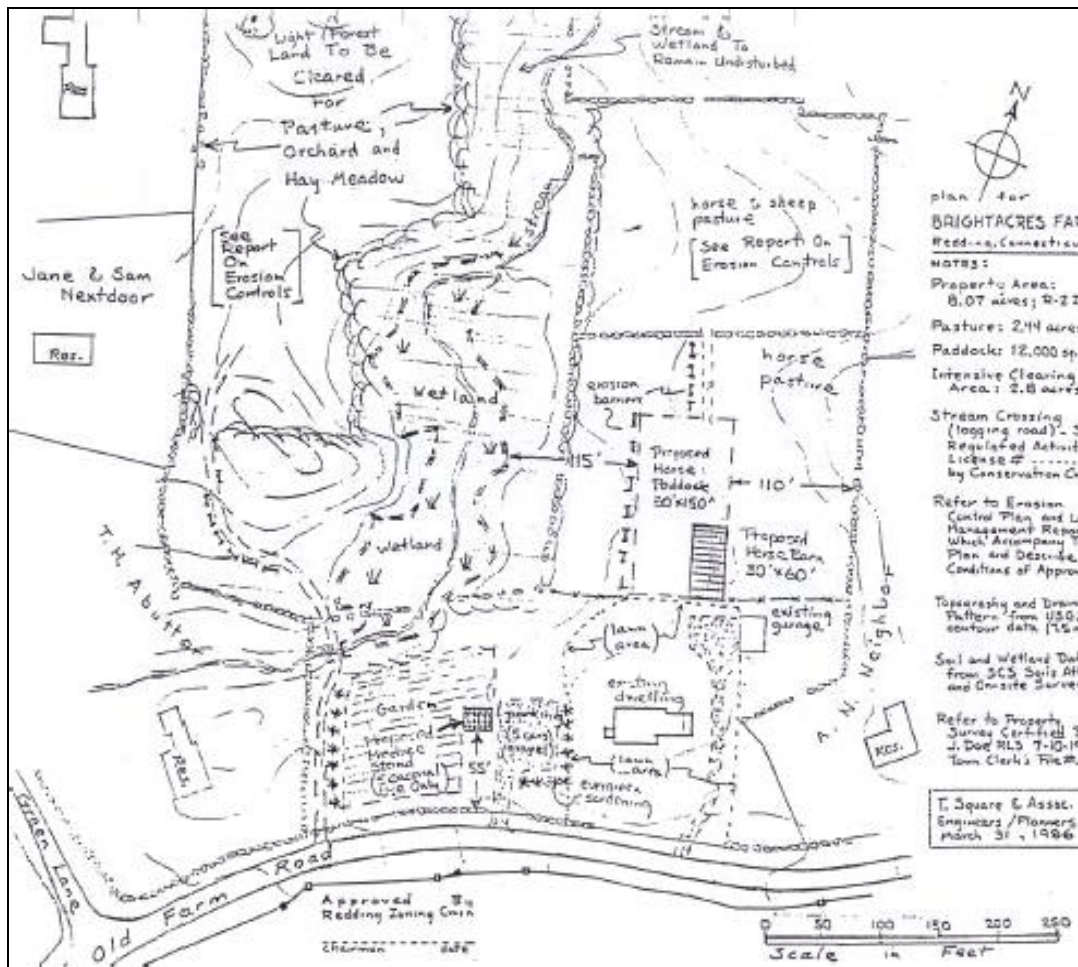 Light Forest
Land To Be
Cleared
For
Pasture,
Orchard and
Hay Meadow
Stream &
Wetland To
Remain Undisturbed
Res
Stream
horse & sheep
pasture
[See Report On
Erosion Controls]
[See
Report
On
Erosion
Controls]
Jane & Sam
Nextdoor
Res.
Wetland
erosion
barriers
horse
pasture
115'
Proposed
Horse
Paddock
80'x150'
110'
wetland
Proposed
Horse Barn
30'x60'
T. M. Abutter
existing
garage
(lawn
area)
A. N. Neighbor
Garden
Proposed
Produce
Stand
(Seasonal
Use Only)
parking
(5 cars
55'
existing
dwelling
(lawn
area)
evergreen
screening
Res.
Res.
Green Lane
Old Farm Road
Approved By
Redding Zoning Cmsn
Chairman date
N
plan for
BRIGHTACRES FA
Redding, Connecticu
NOTES:
Property Area:
8.07 acres; R-2
Pasture: 2.44 acres
Paddock: 12,000 sq
Intensive Clearing
Area: 2.8 acres
Stream Crossing
(logging road) -
Regulated Activit
License #
by Conservation C
Refer to Erosion
Control Plan and L
Management Repo
Which Accompany T
Plan and Describe
Conditions of Approv
Topography and Drain
Pattern from USG
contour data
Soil and Wetland Dat
from SCS Soils At
and On-site Survey
Refer to Property
Survey Certified
J. Doe RLS 7-10-19
Town Clerk's File #
T. Square & Assoc.
Engineers / Planners
March 31, 1986
0 50 100 150 200 250
Scale in Feet